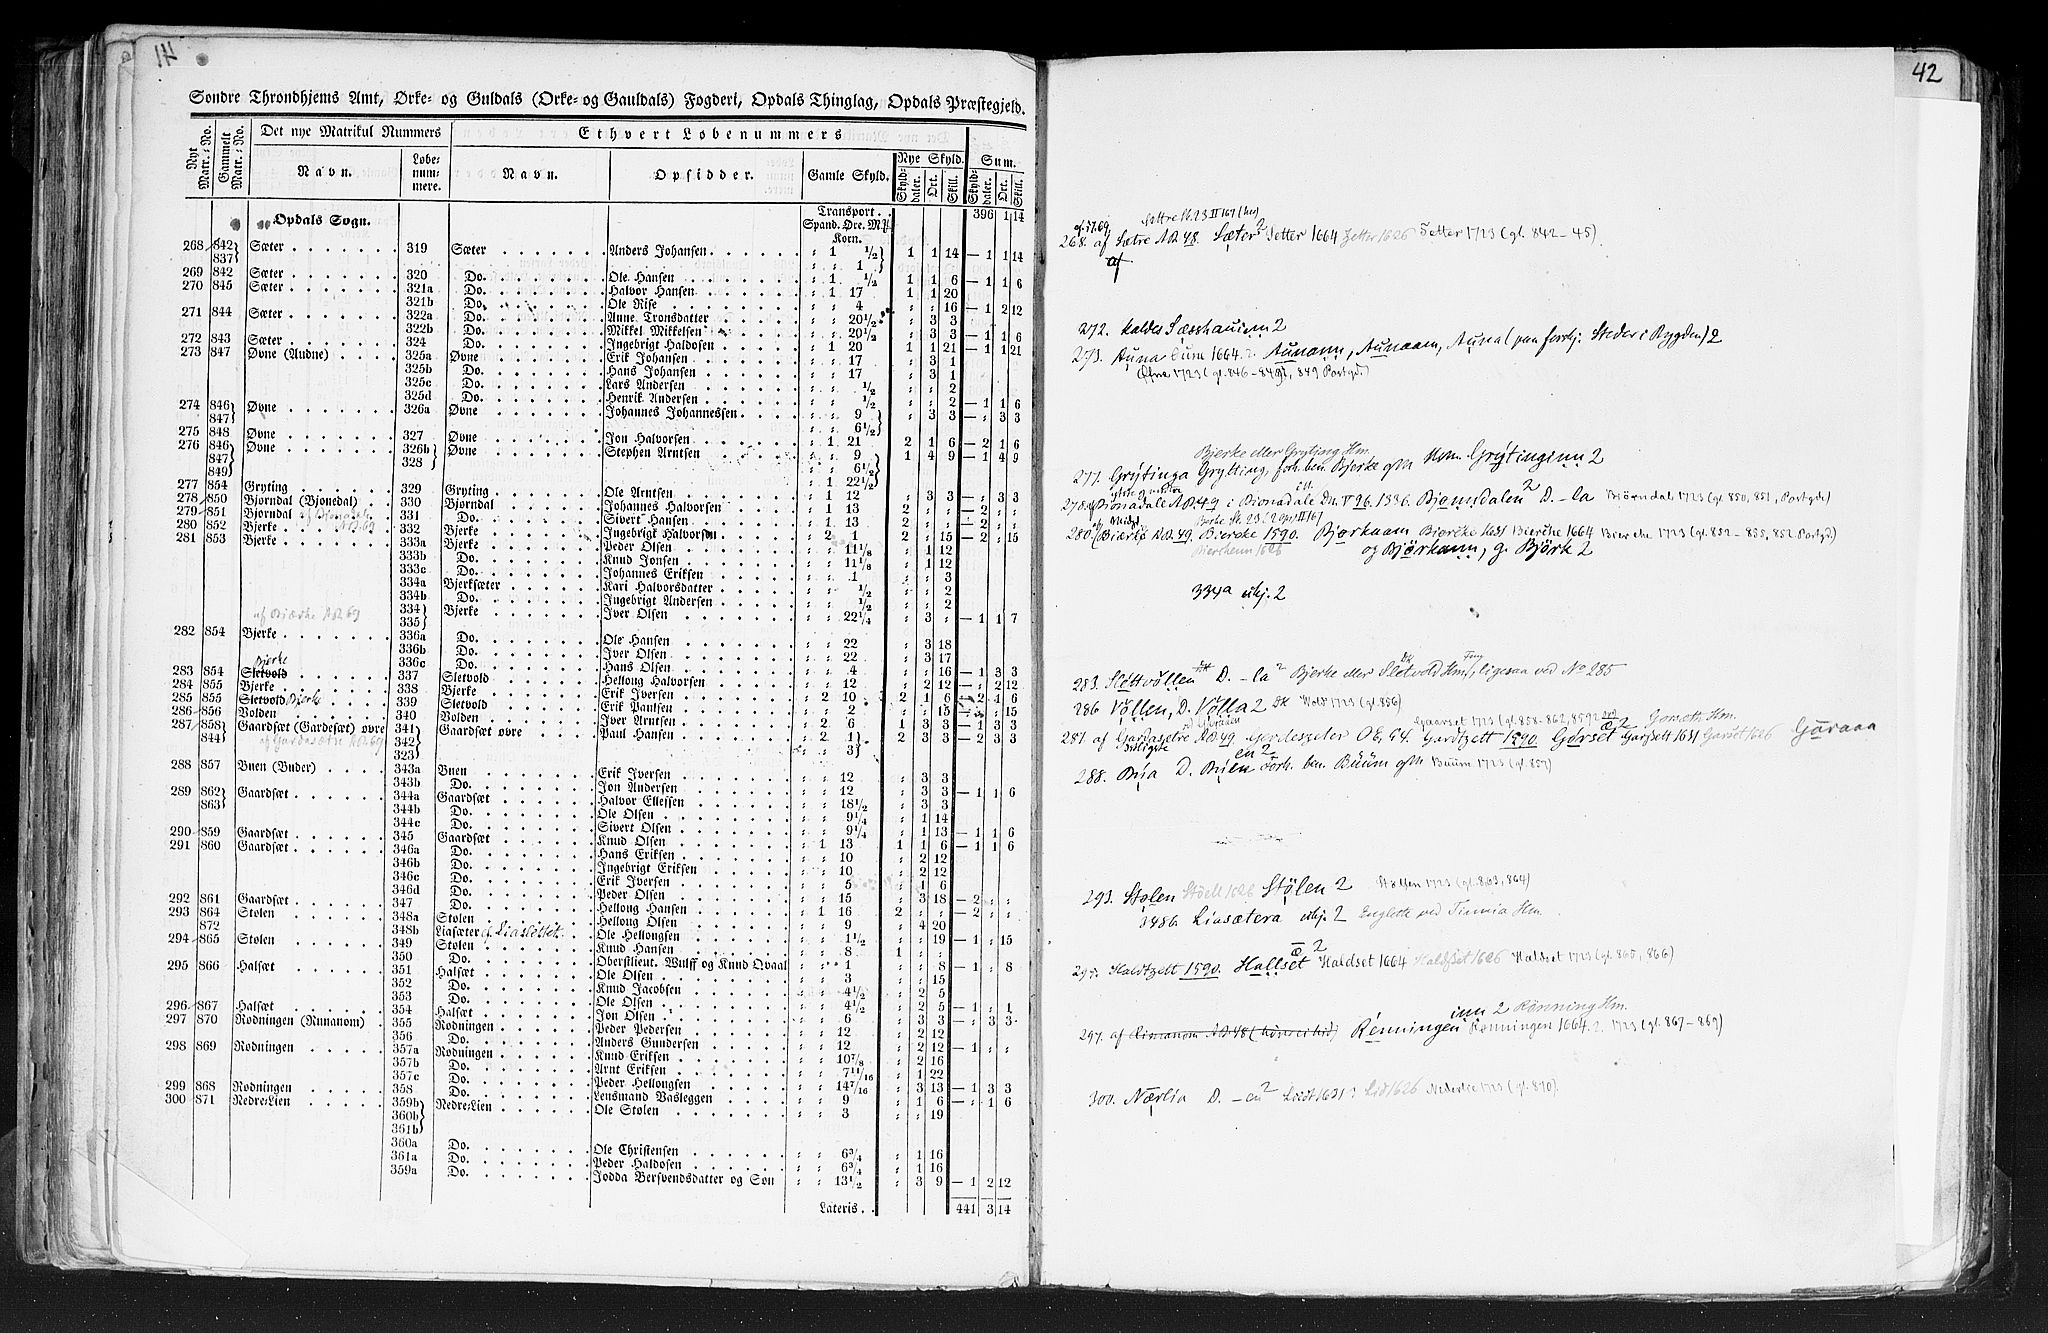 14
Sondre Throndhjems Amt, Ørke- og Guldals (Orke- og Gauldals) Fogderi, Opdals Thinglag, Opdals Præstegjeld.
Nyt Matr.-No. Gammelt Matr.-No. Det nye Matrikul Nummers Ethvert Løbenummers
Navn. Løbe-num-mere. Navn. Opsidder. Gamle Skyld. Nye Skyld. Sum.
Skyld-daler. Ort. Skill. Skyld-daler. Ort. Skill.
Opdals Sogn. Transport . . 396 1 14
Spand. Øre. M#.
Korn.
268 842 837} Sæter 319 Sæter Anders Johansen " 1 1/2 " " 1 } 1 1 14 — 1 1 14
269 842 Sæter 320 Do. Ole Hansen " 1 1/2 1 1 6 — 1 1 6
270 845 Sæter 321a Do. Halvor Hansen " 1 17 1 1 20
321b Do. Ole Rise " " 4 " " 16 — 1 2 12
271 844 Sæter 322a Do. Anne Tronsdatter " " 20 1/2 " 3 3
322b Do. Mikkel Mikkelsen " " 20 1/2 " 3 3 — 1 1 6
272 843 Sæter 324 Do. Ingebrigt Haldosen " 1 20 1 1 21 — 1 1 21
273 847 Øvne (Audne) 325a Øvne Erik Johansen " " 17 " 3 1
325b Do. Hans Johansen " " 17 " 3 1
325c Do. Lars Andersen " " 1/2 " " 2
325d Do. Henrik Andersen " " 1/2 " " 2 — 1 1 6
274 846 847} Øvne 326a Øvne Johannes Johannessen " " 9 " " 6 1/2} " 3 3 — " 3 3
275 848 Øvne 327 Øvne Jon Halvorsen " 1 21 2 1 6 — 2 1 6
276 846 847 849} Øvne 326b 328} Øvne Stephen Arntsen " " 9 " " 6 1/2 " 1 22 1/2} 1 4 9 — 1 4 9
277 854 Gryting 329 Gryting Ole Arntsen " 1 12 " 3 3 — " 3 3
278 850 Bjorndal (Bjonedal) 330 Bjorndal Johannes Halvorsen " 1 13 2 " " — 2 " "
279 851 Bjorndal 331 Do. Sivert Hansen " 1 13 2 " " — 2 " "
280 852 Bjerke 332 Bjerke Ingebrigt Halvorsen " 2 1 2 " 15 — 2 " 15
281 853 Bjerke 333a Bjerke Peder Olsen " " 11 1/8 " 1 12
333b Do. Knud Jonsen " " 11 1/8 " 1 12
333c Do. Johannes Eriksen " " 1 " " 3
334a Bjerksæter Kari Halvorsdatter " " 1/2 " " 2
334b Do. Ingebrigt Andersen " " 1/2 " " 2
af Biærke AB 69 334 335} Bjerke Iver Olsen " " 22 1/4 " 3 " — 1 1 7
282 854 Bjerke 336a Do. Ole Hansen " " 22 " 3 18
336b Do. Iver Olsen " " 22 " 3 17
Bjerke 336c Do. Hans Olsen " " 4 " " 16 — 1 3 3
283 854 Sletvold 337 Sletvold Hellong Halvorsen " " 12 " 2 12 — " 2 12
284 855 Bjerke 338 Bjerke Erik Iversen " 2 10 2 1 6 — 2 1 6
285 855 Sletvold Bjerke 339 Sletvold Erik Pantsen " " 2 " " 15 — " " 15
286 856 Volden 340 Volden Iver Arntsen " 2 6 1 3 3 — 1 3 3
287 858 844} Gaardsæt (Gardesæt) øvre 341 342 323} Gaardsæt øvre Paul Hansen " 2 1 " " 3} 2 3 3 — 2 3 3
af Gardasætre AB 69
288 857 Buen (Buder) 343a Buen Erik Iversen " " 12 " 3 3
343b Do. Jon Andersen " " 12 " 3 3 — 1 1 6
289 862 863} Gaardsæt 344a Gaardsæt Halvor Ellefsen " " 18 1/2 " 3 3
344b Do. Ole Olsen " " 9 1/4 " 1 14
344c Do. Sivert Olsen " " 9 1/4 " 1 13 — 1 1 6
290 859 Gaardsæt 345 Gaardsæt Knud Olsen " 1 13 1 1 6 — 1 1 6
291 860 Gaardsæt 346a Do. Hans Eriksen " " 10 " 2 12
346b Do. Ingebrigt Eriksen " " 10 " 2 12
346c Do. Erik Iversen " " 5 " 1 6
346d Do. Peder Olsen " " 15 " 3 18 — 2 " "
292 861 Gaardsæt 347 Do. Hellong Hansen " 1 16 2 " " — 2 " "
293 864 872 Stolen 348a Stolen Hellong Olsen " " 9 " 4 20
348b Liasæter Ole Hellongsen " " 1 1/2 " " 19 — 1 " 15
294 865 Stolen 349 Stolen Knud Hansen " " 8 1 " "
350 Do. Oberstlieut. Wulff og Knud Qvaal " " 1 " " 8 — 1 " 8
295 866 Halsæt 351 Halsæt Ole Olsen " " 3 " " 15
352 Do. Knud Jacobsen " " 4 1/2 " 2 5
353 Do. Ole Olsen " " 4 1/2 " 2 5 — 1 " 1
296 867 Halsæt 354 Halsæt Jon Olsen " " 6 " 3 3 — " 3 3
297 870 Rodningen (Runanom) 355 Rodningen Peder Pedersen " " 12 " 2 12
356 Do. Anders Gundersen " " 12 " 2 12 — 1 " "
298 869 Rodningen 357a Rodningen Knud Eriksen " " 10 7/8 " 2 16
357b Do. Arnt Eriksen " " 7 11/16 " 1 22
357c Do. Peder Hellongsen " " 14 7/16 " 3 13 — 1 3 3
299 868 Rodningen 358 Do. Lensmand Vasleggen " " 9 " 1 6 — " 1 6
300 871 Nedre-Lien 359b 360b 361b} Nedre-Lien Ole Stolen " " 3 " " 19
360a Do. Ole Christensen " " 6 3/4 " 1 16
361a Do. Peder Haldosen " " 6 3/4 " 1 16
359a Do. Jodda Bersvendsdatter og Søn " " 13 1/2 " 3 9 — 1 2 12
Lateris . . 441 3 14
42
268. af Sætre AB 48. Sæter 2 Setter 1664 Zetter 1626 Setter 1723 (gl. 842–45).
af
272. kaldes Sæsshauinn 2
273. Auna Oune 1664. 2. Aunann, Aunaam, Auna (paa forskj. Steder i Bygden) 2
Øfne 1723 (gl. 846–849, 849 Portgd.)
Bjerke eller Gryting Hm.
277. Grýtinga Grytting, forh. ben. Bjerke ofte Kom. Grýtinginn 2
278. af Bionadale AB 49 i Bionadale DN. V 96. 1336. Bjonndalen 2 D. –la Biørndals 1723 (gl. 850, 851, Portgds)
280. (Biærkø AB. 49 Biercke 1590. Bjørkaam Biercke 1631 Bierche 1664 Bierche 1723 (gl. 852–855, 852 Portgd)
Biersheim 1626 og Bjørkann, g. Bjørk 2
334a ubj. 2
283. Slettvöllen D. –la 2 Bjerke eller Sletvold Hm., ligesaa ved No 285
286 Völlen, D. Völla 2 Vold 1723 (gl. 856)
Gaarset 1723 (gl. 858–862, 859
287. af Gardasetre AB 49 Gardeszeter OE. 64. Gardtzett 1590. Garset 2 Garssett 1631 Garset 1626 Garaaa
288. Búa D. Búen Forh. ben. Buum ofte Buum 1723 (gl. 857)
293. Stolen Støell 1626 Stölen 2 Støllen 1723 (gl. 863, 864)
348b. Liasætera ubj. 2 Englette ved Tinnia Hm.
295. Haldtzett 1590. Hallset 2 Haldset 1664 Haldset 1626 Haldset 1723 (gl. 865, 866)
inn 2 Rønning Hm.
297. af Rimanom AB 48 (hører ei hid) Rönningen Rønningen 1664. 2. 1723 (gl. 867–869)
300. Nærlia D. –en 2 Liidt 1631: Lid 1626 Nederlie 1723 (gl. 870)